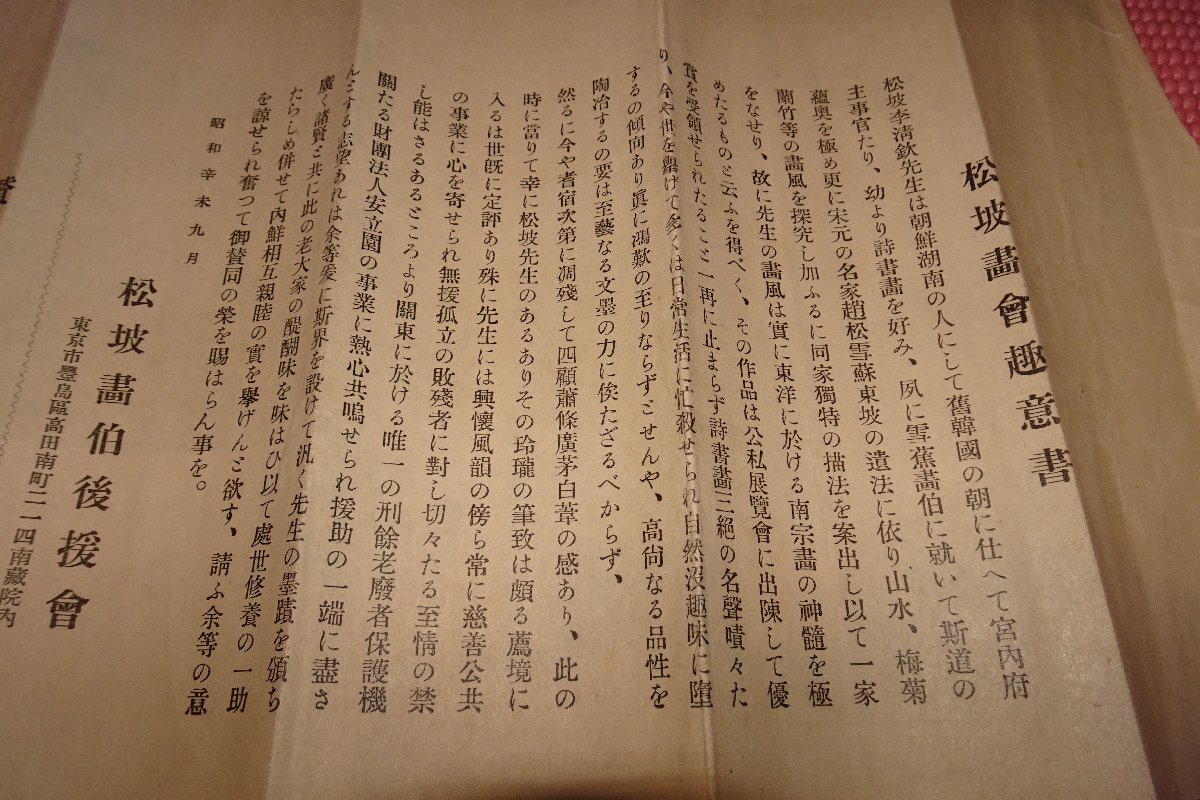 松坡畵會趣意書
松坡李清欽先生は朝鮮湖南の人にして舊韓國の朝に仕へて宮內府
主事官たり、幼より詩書畵を好み、夙に雪蕉畵伯に就いて斯道の
蘊奥を極め更に宋元の名家趙松雪蘇東坡の遺法に依り山水、梅菊
蘭竹等の畵風を探究し加ふるに同家獨特の描法を案出し以て一家
をなせり、故に先生の畵風は實に東洋に於ける南宗畵の神髓を極
めたるものと云ふを得べく、その作品は公私展覽會に出陳して優
賞を受領せられたること一再に止まらず詩書畵三絕の名聲嘖々た
り、今や世を擧げて多くは日常生活に忙殺せられ自然沒趣味に墮
するの傾向あり眞に鴻歎の至りならずとせんや、高尙なる品性を
陶冶するの要は至藝なる文墨の力に俟たざるべからず、
然るに今や耆宿次第に凋殘して四顧蕭條廣茅白葦の感あり、此の
時に當りて幸に松坡先生のあるありその玲瓏の筆致は頗る薦境に
入るは世旣に定評あり殊に先生には興懷風韻の傍ら常に慈善公共
の事業に心を寄せられ無援孤立の敗殘者に對し切々たる至情の禁
し能はさるあるところより關東に於ける唯一の刑餘老廢者保護機
關たる財團法人安立園の事業に熱心共鳴せられ援助の一端に盡さ
んとする志望あれは余等爰に斯界を設けて汎く先生の墨蹟を頒ち
廣く諸賢と共に此の老大家の醍醐味を味はひ以て處世修養の一助
たらしめ併せて內鮮相互親睦の實を擧げんと欲す、請ふ余等の意
を諒せられ奮つて御賛同の榮を賜はらん事を。
昭和辛未九月
松坡畵伯後援會
東京市豐島區高田南町二ノ一四南藏院內